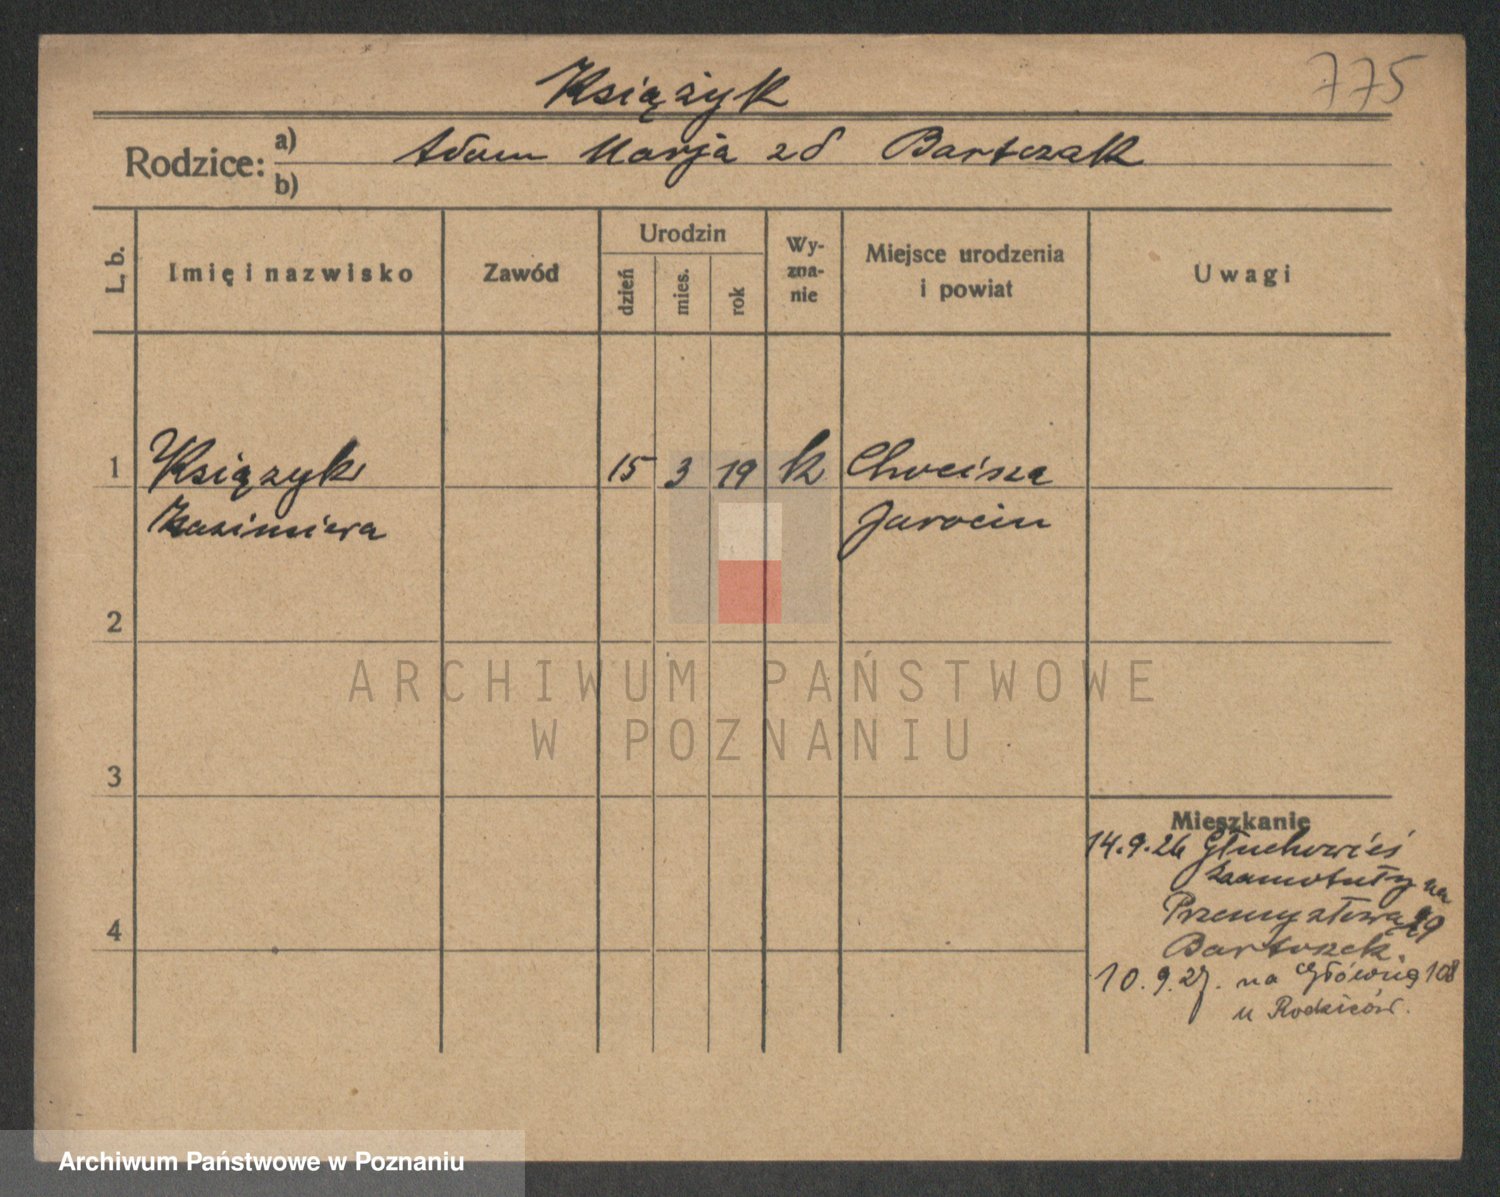 775
Książyk
Rodzice: a) Adam Marja zd Bartczak
b)
L. b. Imię i nazwisko Zawód Urodzin dzień mies. rok Wy-zna-nie Miejsce urodzenia i powiat Uwagi
1 Książyk 15 3 19 k Chwcisza
Kazimiera Jarocin
2
ARCHIWUM PAŃSTWOWE
W POZNANIU
3
Mieszkanie
14.9.26 Głuchowieś
Szamotuły na
Przemysłową 29
4 Bartoszek.
10.9.27. na Główną 108
u Rodziców.
Archiwum Państwowe w Poznaniu